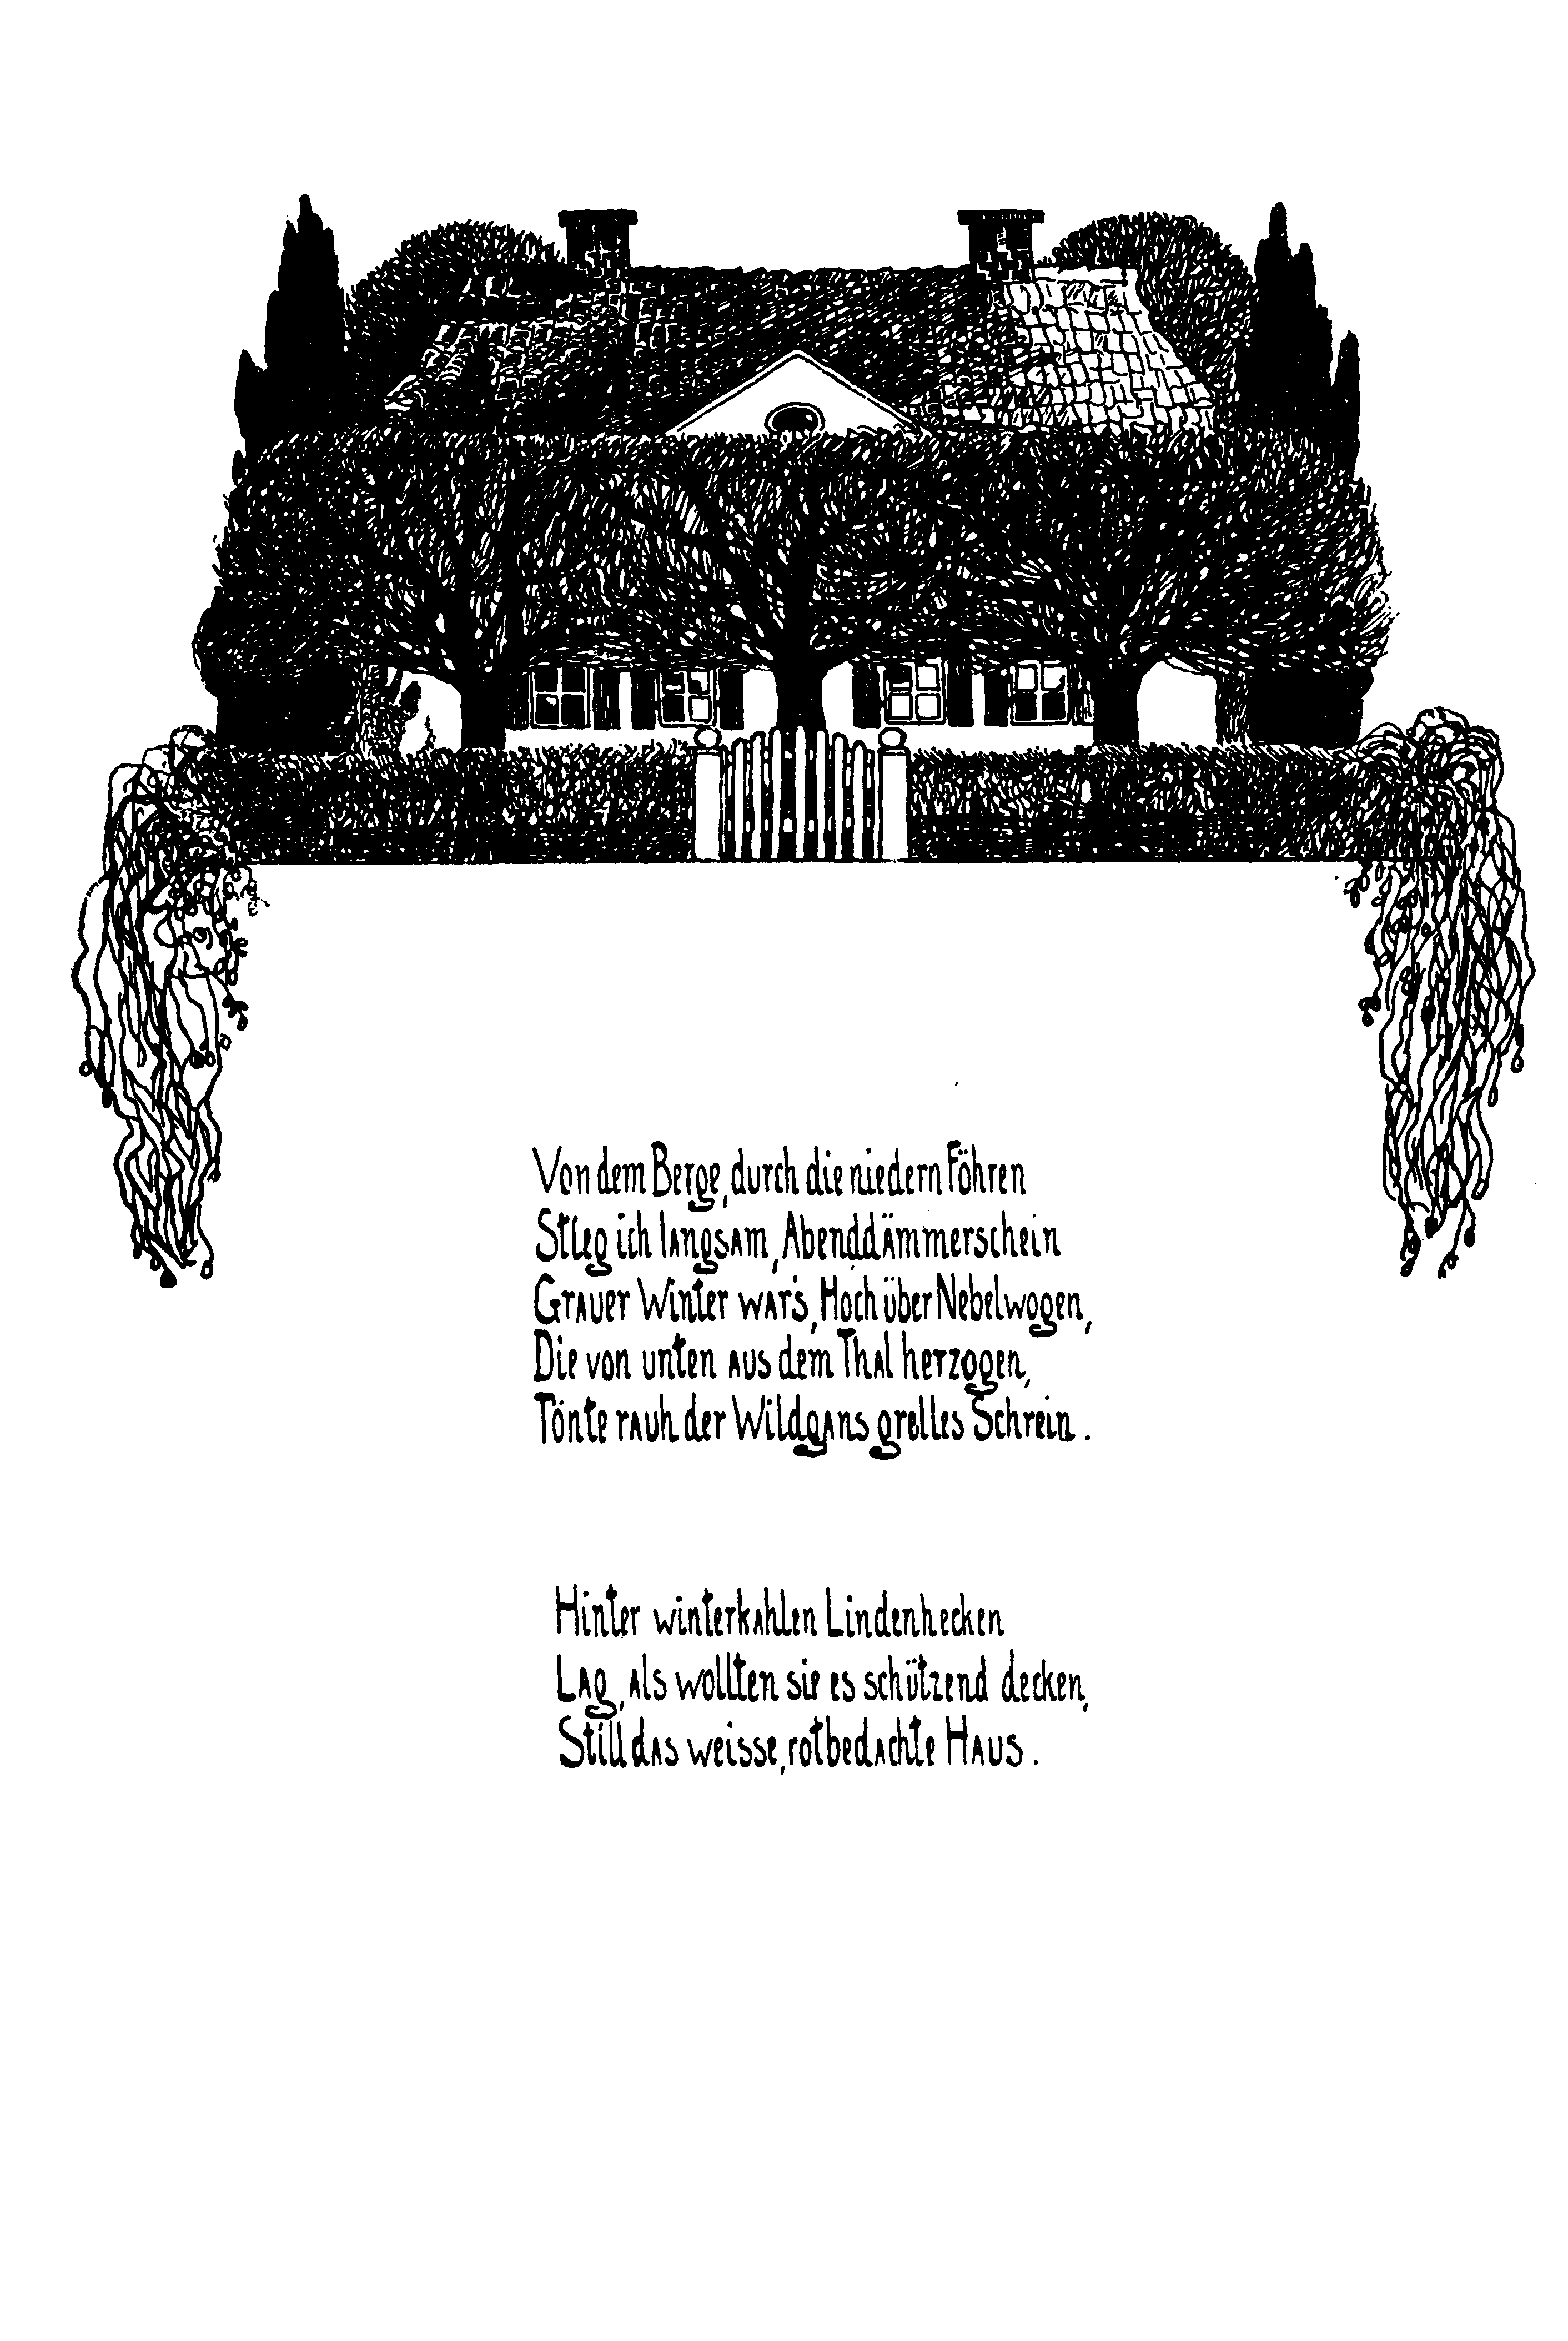 Von dem Berge, durch die niedern Föhren
Stieg ich langsam, Abenddämmerschein
Grauer Winter war's, Hoch über Nebelwogen,
Die von unten aus dem Thal herzogen,
Tönte rauh der Wildgans grelles Schrein.
Hinter winterkahlen Lindenhecken
Lag, als wollten sie es schützend decken,
Still das weisse, rotbedachte Haus.